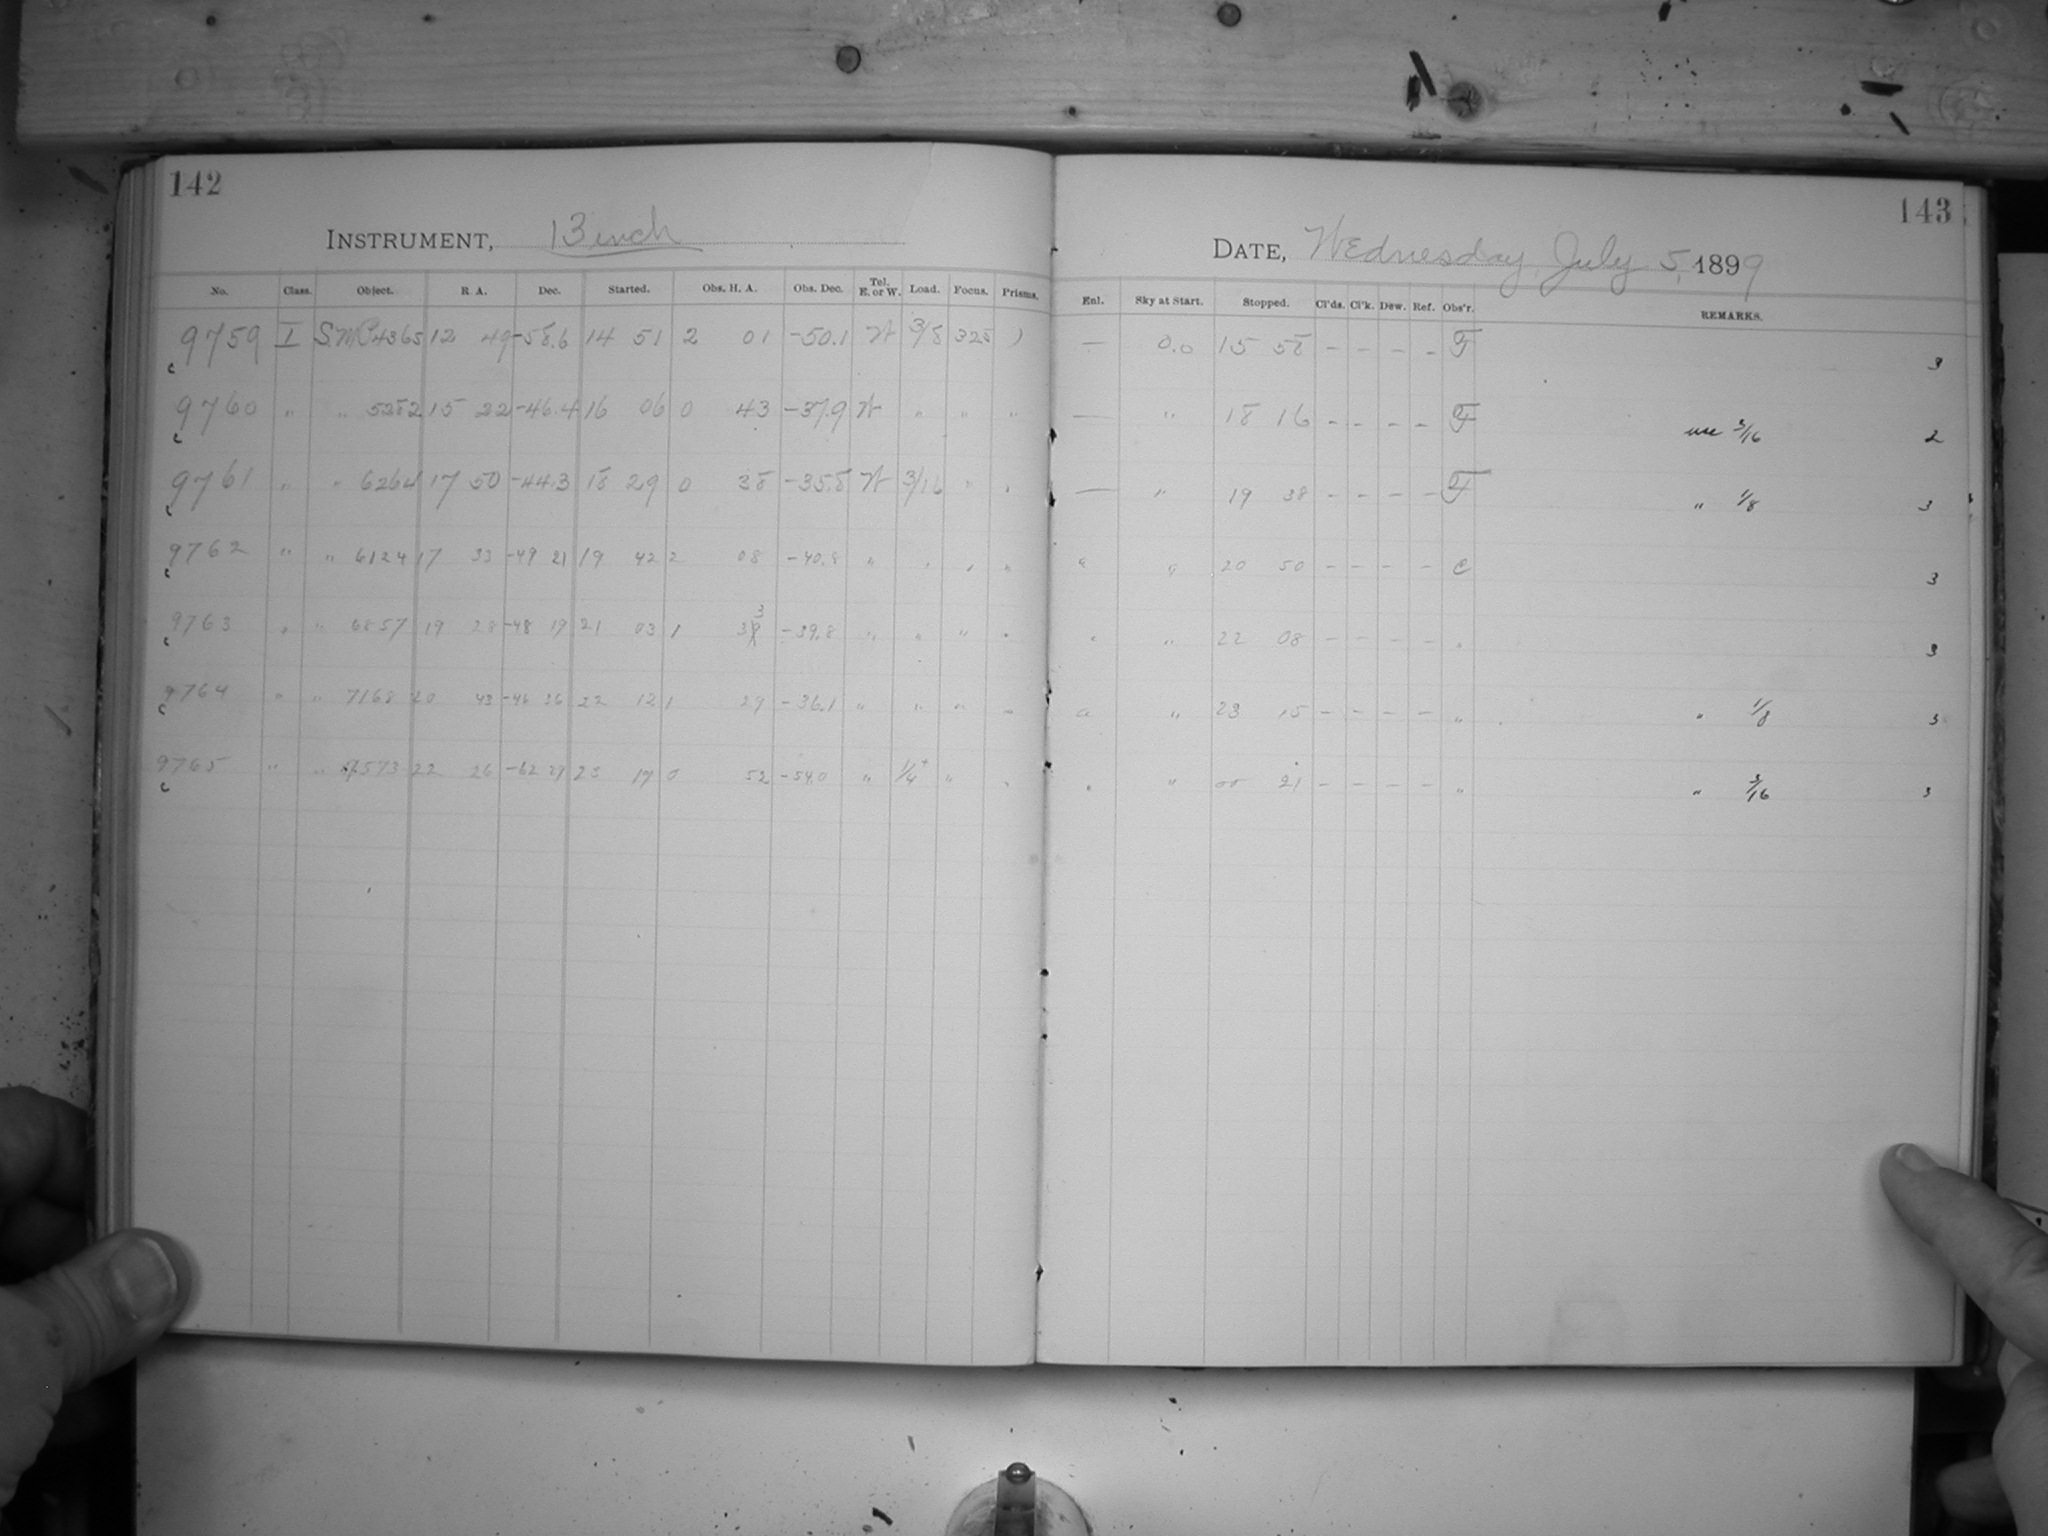 142
INSTRUMENT, 13 inch
No. Class. Object. R. A. Dec. Started. Obs. H. A. Obs. Dec. Tel. E. or W. Load. Focus. Prisms.
9759 I S.M.P. 4365 12 49 -58.6 14 51 2 01 -50.1 W 3/8 325 )
9760 " " 5282 15 22 -46.4 16 06 0 43 -37.9 W " " "
9761 " " 6264 17 50 -44.3 18 29 0 38 -35.8 W 3/16 " "
9762 " " 6124 17 33 -49 21 19 42 2 08 -40.9 " " " "
9763 " " 6857 19 28 -48 19 21 03 1 33 -39.8 " " " "
9764 " " 7168 20 43 -46 36 22 12 1 29 -36.1 " " " "
9765 " " 7573 22 26 -62 29 23 19 0 52 -54.0 " 1/4+ " "
143
DATE, Wednesday, July 5, 1899
Enl. Sky at Start. Stopped. Cl'ds. Cl'k. Dew. Ref. Obs'r. REMARKS.
— 0.0 15 58 - - - - F 3
— " 18 16 - - - - F use 3/16 2
— " 19 38 - - - - F " 1/8 3
" " 20 50 - - - - C 3
" " 22 08 - - - - " 3
" " 23 15 - - - - " " 1/8 3
" " 00 21 - - - - " " 3/16 3